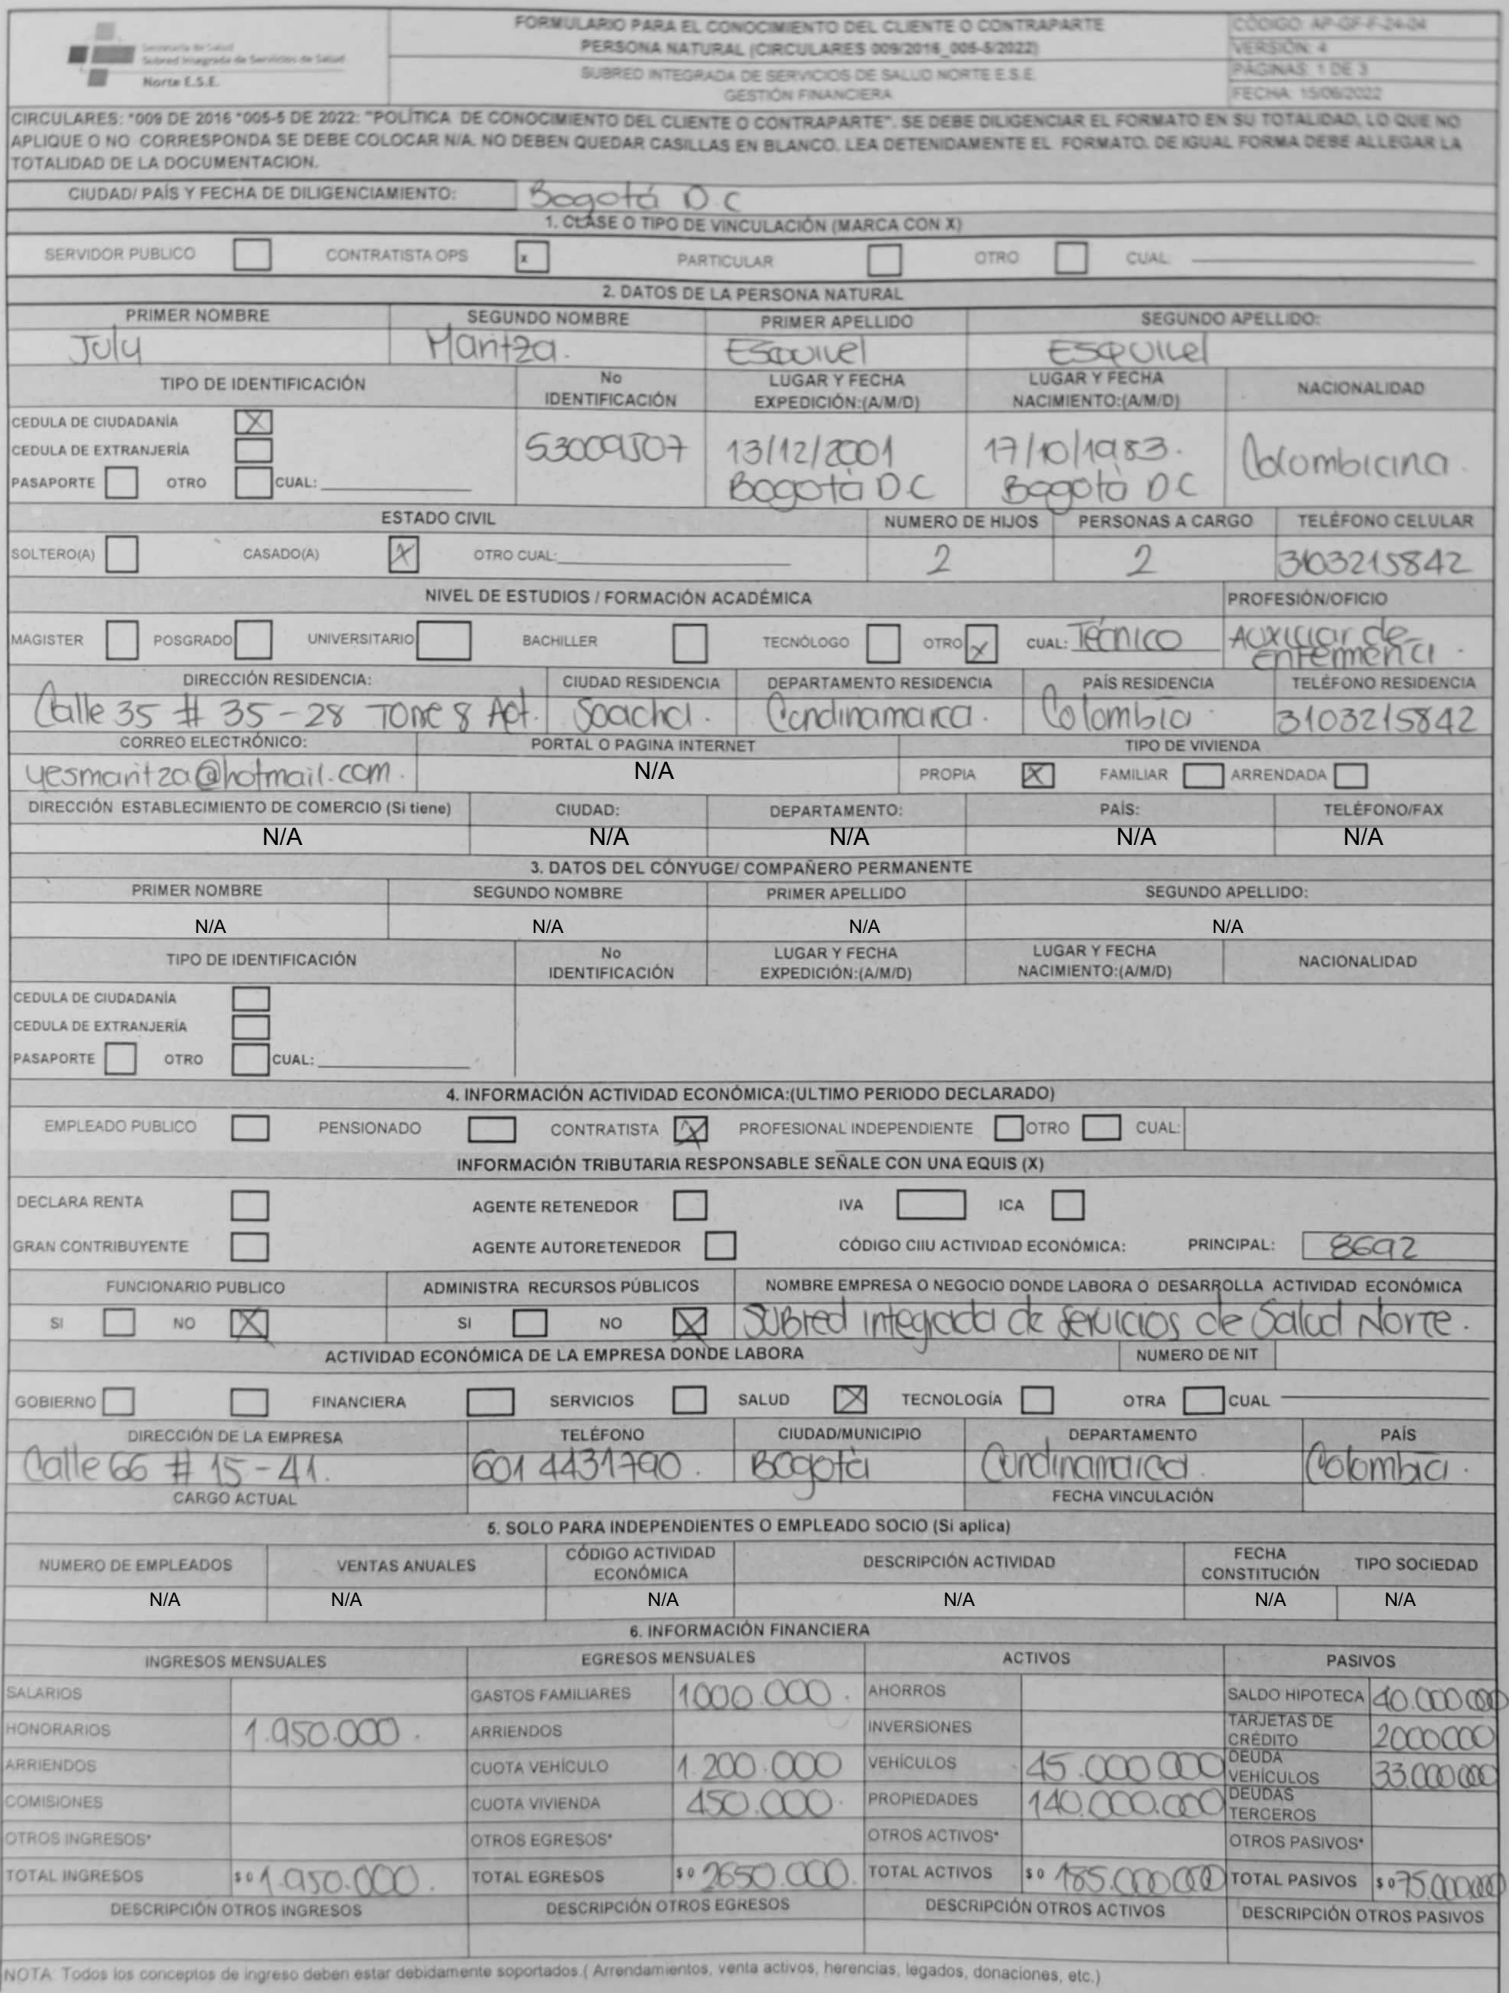 Secretaría de Salud
Subred Integrada de Servicios de Salud
Norte E.S.E.
FORMULARIO PARA EL CONOCIMIENTO DEL CLIENTE O CONTRAPARTE
PERSONA NATURAL (CIRCULARES 009/2016_005-5/2022)
SUBRED INTEGRADA DE SERVICIOS DE SALUD NORTE E.S.E.
GESTIÓN FINANCIERA
CÓDIGO: AP-GF-F-24-04
VERSIÓN: 4
PÁGINAS: 1 DE 3
FECHA: 15/06/2022
CIRCULARES: *009 DE 2016 *005-5 DE 2022: "POLÍTICA DE CONOCIMIENTO DEL CLIENTE O CONTRAPARTE". SE DEBE DILIGENCIAR EL FORMATO EN SU TOTALIDAD, LO QUE NO
APLIQUE O NO CORRESPONDA SE DEBE COLOCAR N/A. NO DEBEN QUEDAR CASILLAS EN BLANCO. LEA DETENIDAMENTE EL FORMATO. DE IGUAL FORMA DEBE ALLEGAR LA
TOTALIDAD DE LA DOCUMENTACION.
CIUDAD/ PAÍS Y FECHA DE DILIGENCIAMIENTO: Bogotá D.C
1. CLASE O TIPO DE VINCULACIÓN (MARCA CON X)
SERVIDOR PUBLICO CONTRATISTA OPS x PARTICULAR OTRO CUAL:
2. DATOS DE LA PERSONA NATURAL
PRIMER NOMBRE SEGUNDO NOMBRE PRIMER APELLIDO SEGUNDO APELLIDO:
July Maritza. Esquivel Esquivel
TIPO DE IDENTIFICACIÓN No IDENTIFICACIÓN LUGAR Y FECHA EXPEDICIÓN:(A/M/D) LUGAR Y FECHA NACIMIENTO:(A/M/D) NACIONALIDAD
CEDULA DE CIUDADANÍA X
CEDULA DE EXTRANJERÍA
PASAPORTE OTRO CUAL:
53009507 13/12/2001 17/10/1983. Colombiana.
Bogotá D.C Bogotá D.C
ESTADO CIVIL NUMERO DE HIJOS PERSONAS A CARGO TELÉFONO CELULAR
SOLTERO(A) CASADO(A) X OTRO CUAL: 2 2 3103215842
NIVEL DE ESTUDIOS / FORMACIÓN ACADÉMICA PROFESIÓN/OFICIO
MAGISTER POSGRADO UNIVERSITARIO BACHILLER TECNÓLOGO OTRO X CUAL: Técnico Auxiliar de
enfermería.
DIRECCIÓN RESIDENCIA: CIUDAD RESIDENCIA DEPARTAMENTO RESIDENCIA PAÍS RESIDENCIA TELÉFONO RESIDENCIA
Calle 35 # 35-28 Torre 8 Apt. Soacha. Cundinamarca. Colombia. 3103215842
CORREO ELECTRÓNICO: PORTAL O PAGINA INTERNET TIPO DE VIVIENDA
yesmaritza@hotmail.com. N/A PROPIA X FAMILIAR ARRENDADA
DIRECCIÓN ESTABLECIMIENTO DE COMERCIO (Si tiene) CIUDAD: DEPARTAMENTO: PAÍS: TELÉFONO/FAX
N/A N/A N/A N/A N/A
3. DATOS DEL CÓNYUGE/ COMPAÑERO PERMANENTE
PRIMER NOMBRE SEGUNDO NOMBRE PRIMER APELLIDO SEGUNDO APELLIDO:
N/A N/A N/A N/A
TIPO DE IDENTIFICACIÓN No IDENTIFICACIÓN LUGAR Y FECHA EXPEDICIÓN:(A/M/D) LUGAR Y FECHA NACIMIENTO:(A/M/D) NACIONALIDAD
CEDULA DE CIUDADANÍA
CEDULA DE EXTRANJERÍA
PASAPORTE OTRO CUAL:
4. INFORMACIÓN ACTIVIDAD ECONÓMICA:(ULTIMO PERIODO DECLARADO)
EMPLEADO PUBLICO PENSIONADO CONTRATISTA X PROFESIONAL INDEPENDIENTE OTRO CUAL:
INFORMACIÓN TRIBUTARIA RESPONSABLE SEÑALE CON UNA EQUIS (X)
DECLARA RENTA AGENTE RETENEDOR IVA ICA
GRAN CONTRIBUYENTE AGENTE AUTORETENEDOR CÓDIGO CIIU ACTIVIDAD ECONÓMICA: PRINCIPAL: 8692
FUNCIONARIO PUBLICO ADMINISTRA RECURSOS PÚBLICOS NOMBRE EMPRESA O NEGOCIO DONDE LABORA O DESARROLLA ACTIVIDAD ECONÓMICA
SI NO X SI NO X Subred integrada de servicios de Salud Norte.
ACTIVIDAD ECONÓMICA DE LA EMPRESA DONDE LABORA NUMERO DE NIT
GOBIERNO FINANCIERA SERVICIOS SALUD X TECNOLOGÍA OTRA CUAL
DIRECCIÓN DE LA EMPRESA TELÉFONO CIUDAD/MUNICIPIO DEPARTAMENTO PAÍS
Calle 66 # 15-41. 601 4431790. Bogotá Cundinamarca. Colombia.
CARGO ACTUAL FECHA VINCULACIÓN
5. SOLO PARA INDEPENDIENTES O EMPLEADO SOCIO (Si aplica)
NUMERO DE EMPLEADOS VENTAS ANUALES CÓDIGO ACTIVIDAD ECONÓMICA DESCRIPCIÓN ACTIVIDAD FECHA CONSTITUCIÓN TIPO SOCIEDAD
N/A N/A N/A N/A N/A N/A
6. INFORMACIÓN FINANCIERA
INGRESOS MENSUALES EGRESOS MENSUALES ACTIVOS PASIVOS
SALARIOS GASTOS FAMILIARES 1000.000. AHORROS SALDO HIPOTECA 40.000000
HONORARIOS 1.950.000. ARRIENDOS INVERSIONES TARJETAS DE CRÉDITO 2000000
ARRIENDOS CUOTA VEHÍCULO 1.200.000 VEHÍCULOS 45.000000 DEUDA VEHÍCULOS 33.000000
COMISIONES CUOTA VIVIENDA 450.000. PROPIEDADES 140.000.000 DEUDAS TERCEROS
OTROS INGRESOS* OTROS EGRESOS* OTROS ACTIVOS* OTROS PASIVOS*
TOTAL INGRESOS $ 0 1.950.000. TOTAL EGRESOS $ 0 2650.000. TOTAL ACTIVOS $ 0 185.000000 TOTAL PASIVOS $ 0 75.000000
DESCRIPCIÓN OTROS INGRESOS DESCRIPCIÓN OTROS EGRESOS DESCRIPCIÓN OTROS ACTIVOS DESCRIPCIÓN OTROS PASIVOS
NOTA: Todos los conceptos de ingreso deben estar debidamente soportados.( Arrendamientos, venta activos, herencias, legados, donaciones, etc.)